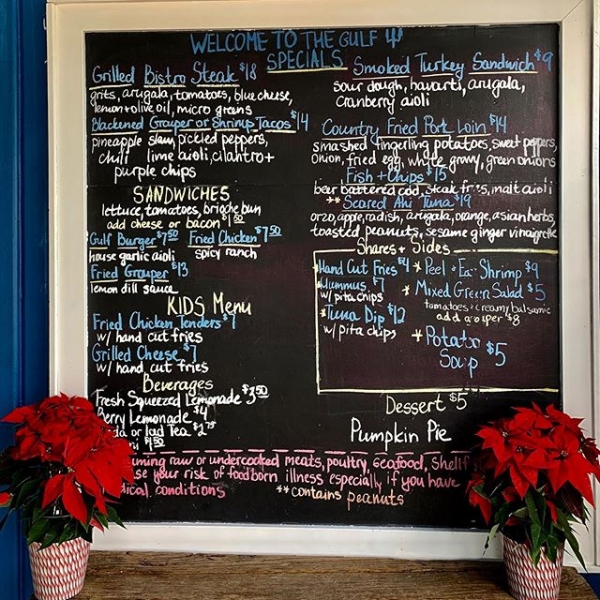 WELCOME TO THE GULF
SPECIALS
Grilled Bistro Steak $18
grits, arugala, tomatoes, blue cheese,
lemon + olive oil, micro greens
Blackened Grouper or Shrimp Tacos $14
pineapple slaw, pickled peppers,
chili lime aioli, cilantro +
purple chips
SANDWICHES
lettuce, tomatoes, brioche bun
add cheese or bacon $1.50
Gulf Burger $7.50 Fried Chicken $7.50
house garlic aioli spicy ranch
Fried Grouper $13
lemon dill sauce
KIDS Menu
Fried Chicken Tenders $7
w/ hand cut fries
Grilled Cheese $7
w/ hand cut fries
Beverages
Fresh Squeezed Lemonade $3.50
Berry Lemonade $4
or Iced Tea $2.75
$1.50
Smoked Turkey Sandwich $9
sour dough, havarti, arugala,
cranberry aioli
Country Fried Pork Loin $14
smashed fingerling potatoes, sweet peppers,
onion, fried egg, white gravy, green onions
Fish + Chips $15
beer battered cod, steak fries, malt aioli
** Seared Ahi Tuna $19
orzo, apple, radish, arugala, orange, asian herbs,
toasted peanuts, sesame ginger vinaigrette
Shares + Sides
*Hand Cut Fries $4
*Hummus $7
w/ pita chips
*Tuna Dip $12
w/ pita chips
* Peel + Eat Shrimp $9
* Mixed Green Salad $5
tomatoes + creamy balsamic
add grouper $8
* Potato
Soup $5
Dessert $5
Pumpkin Pie
uming raw or undercooked meats, poultry, seafood, shellf
se your risk of foodborn illness especially if you have
dical conditions
**contains peanuts